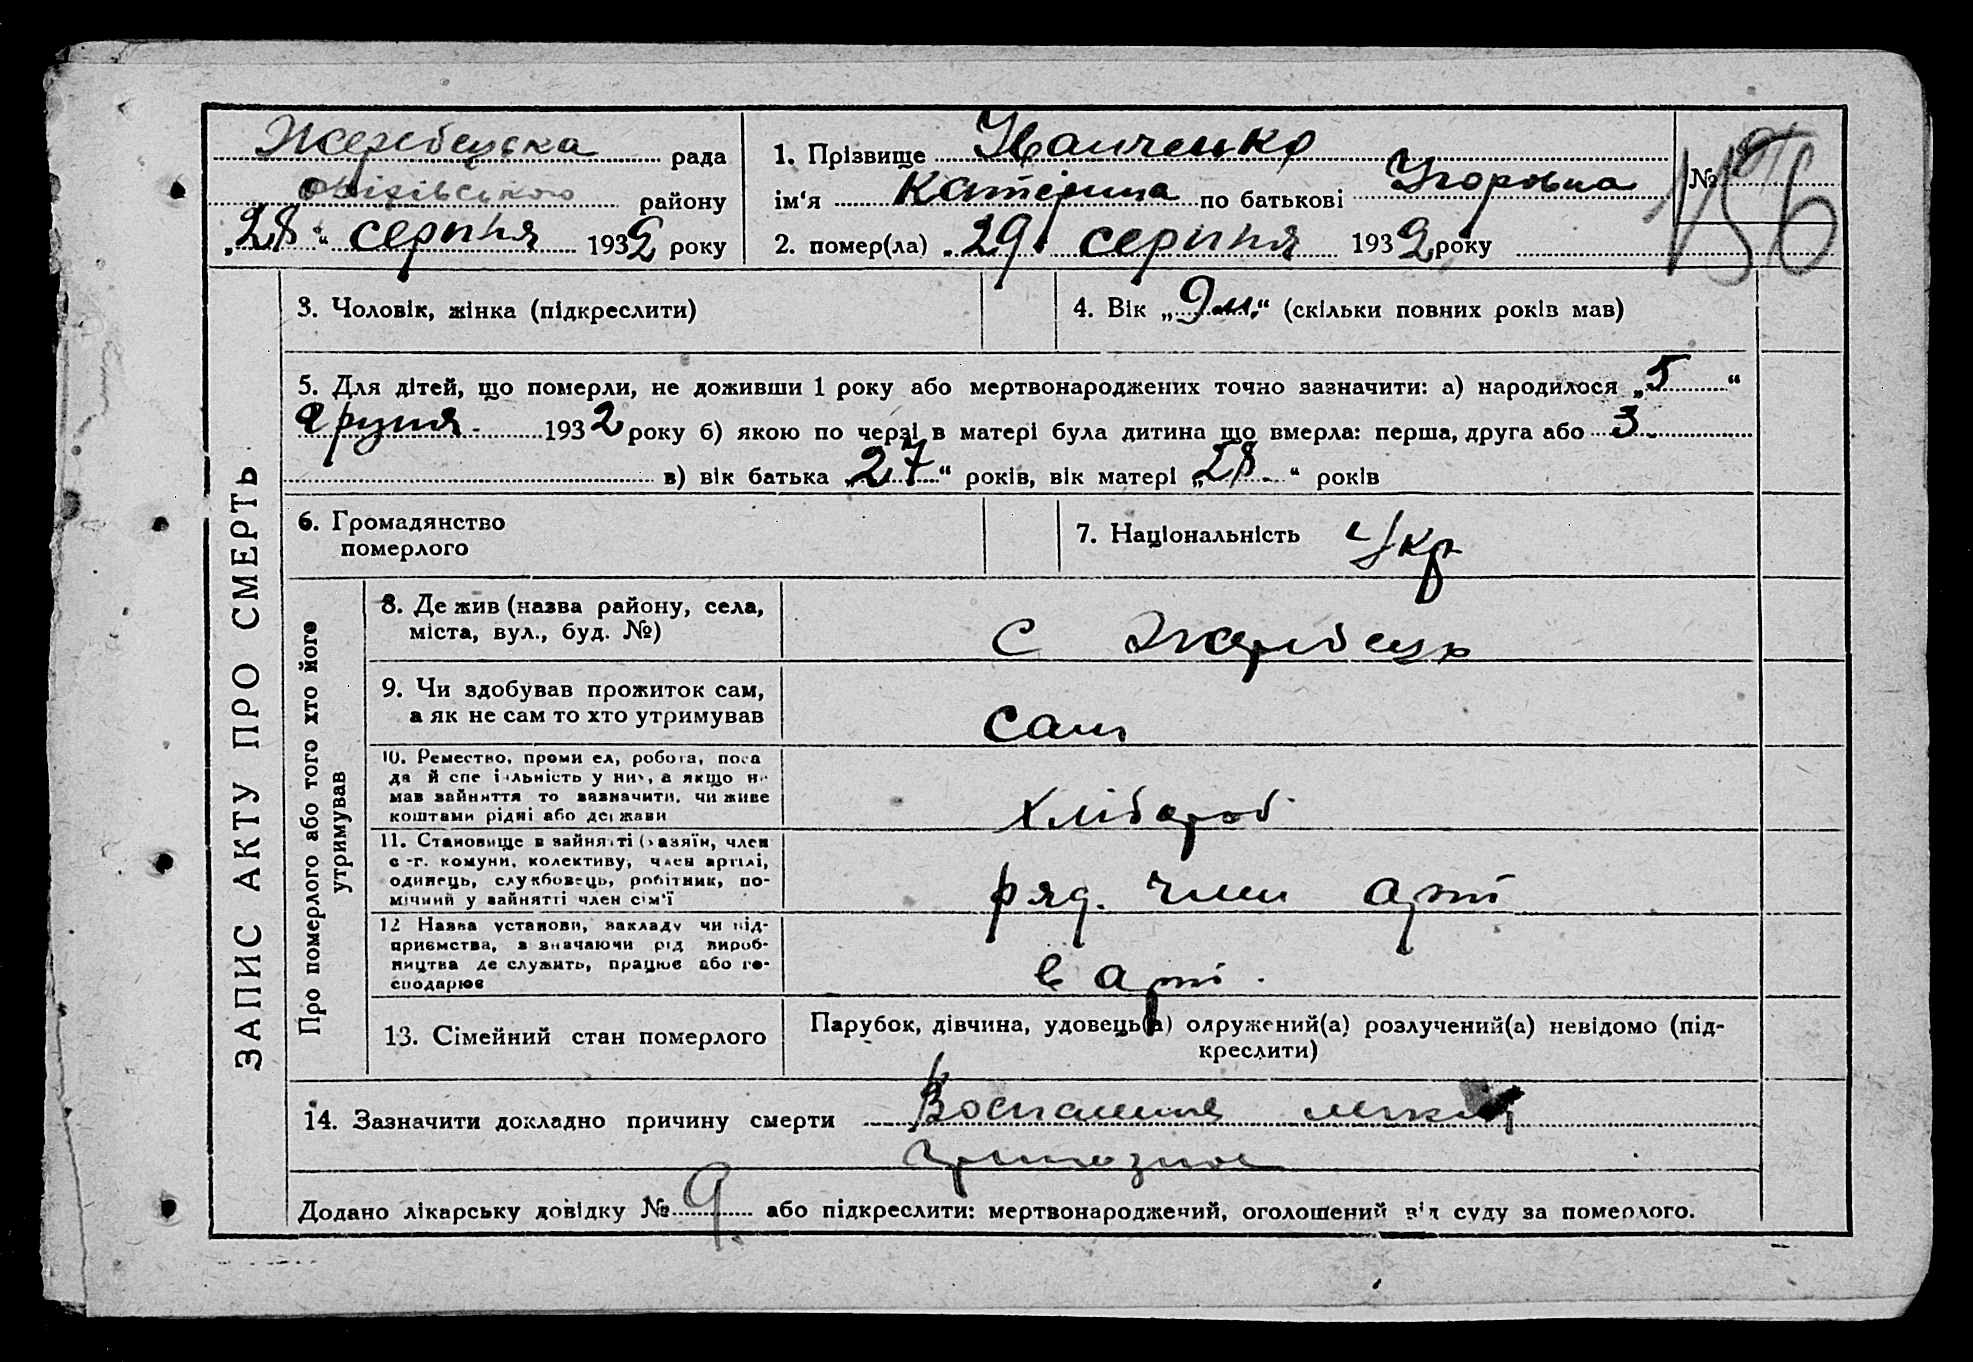 Жеребецька рада
Оріхівського району
„28“ серпня 1932 року
1. Прізвище Иванченко
ім'я Катерина по батькові Угоровна
2. помер(ла) „29“ серпня 1932 року
№ 156
ЗАПИС АКТУ ПРО СМЕРТЬ
3. Чоловік, жінка (підкреслити)
4. Вік „9 м.“ (скільки повних років мав)
5. Для дітей, що померли, не доживши 1 року або мертвонароджених точно зазначити: а) народилося „5“
грудня 1932 року б) якою по черзі в матері була дитина що вмерла: перша, друга або 3
в) вік батька „27“ років, вік матері „28“ років
6. Громадянство
померлого
7. Національність Укр
Про померлого або того хто його
утримував
8. Де жив (назва району, села,
міста, вул., буд. №)
С Жеребець
9. Чи здобував прожиток сам,
а як не сам то хто утримував
сам
10. Ремество, промисел, робота, поса
да й спеціяльність у них, а якщо не
мав зайняття то зазначити, чи живе
коштами рідні або держави
Хлібороб
11. Становище в зайнятті (хазяїн, член
с.-г. комуни, колективу, член артілі,
одинець, службовець, робітник, по-
мічний у зайнятті член сім'ї
ряд. член арті
12 Назва установи, закладу чи під-
приємства, зазначаючи рід вироб-
ництва де служить, працює або го-
сподарює
в арті.
13. Сімейний стан померлого
Парубок, дівчина, удовець(а) одружений(а) розлучений(а) невідомо (під-
креслити)
14. Зазначити докладно причину смерти Воспаление легких
Додано лікарську довідку № 9 або підкреслити: мертвонароджений, оголошений від суду за померлого.